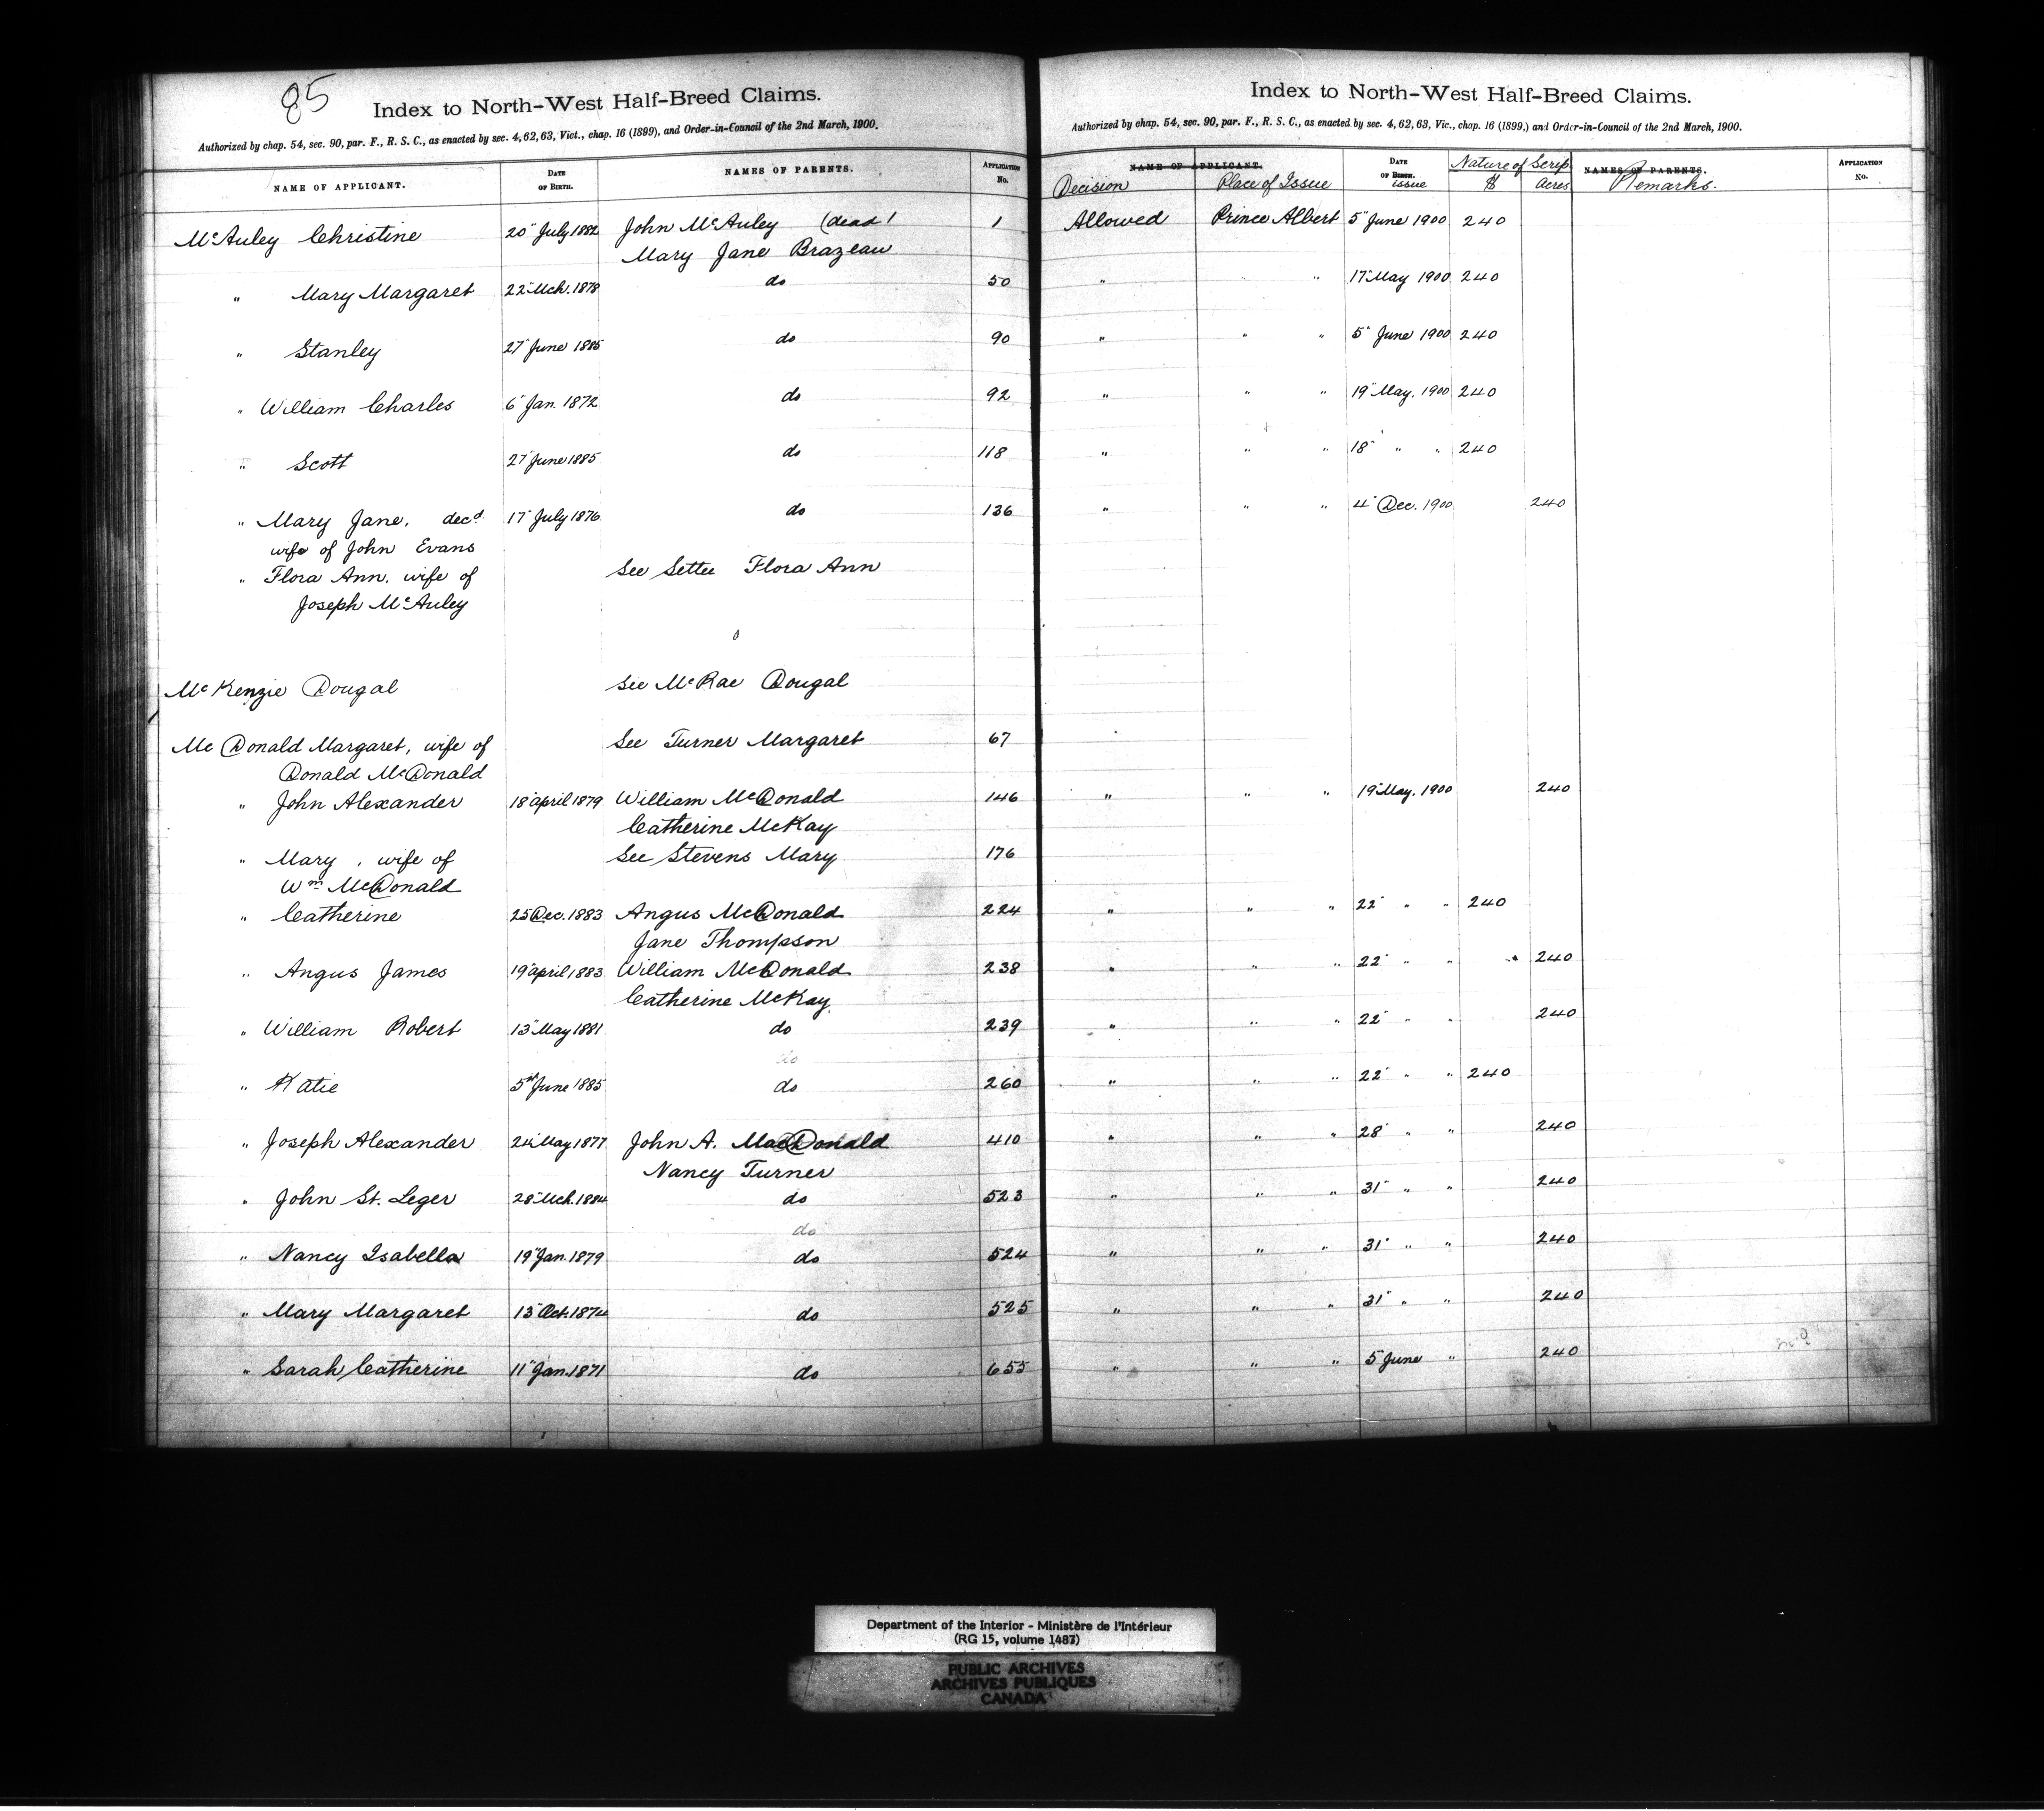 85
Index to North-West Half-Breed Claims.
Authorized by chap. 54, sec. 90, par. F., R. S. C., as enacted by sec. 4, 62, 63, Vict., chap. 16 (1899), and Order-in-Council of the 2nd March, 1900.
NAME OF APPLICANT. DATE OF BIRTH. NAMES OF PARENTS. APPLICATION No.
McAuley Christine 20" July 1882 John McAuley (dead) 1
Mary Jane Brazeau
" Mary Margaret 22" Mch. 1878 do 50
" Stanley 27" June 1885 do 90
" William Charles 6" Jan. 1872 do 92
" Scott 27" June 1885 do 118
" Mary Jane, decd. 17" July 1876 do 136
wife of John Evans
" Flora Ann, wife of See Settee Flora Ann
Joseph McAuley
McKenzie Dougal See McRae Dougal
McDonald Margaret, wife of See Turner Margaret 67
Donald McDonald
" John Alexander 18" April 1879 William McDonald 146
Catherine McKay
" Mary, wife of See Stevens Mary 176
Wm McDonald
" Catherine 25 Dec. 1883 Angus McDonald 224
Jane Thompson
" Angus James 19" April 1883 William McDonald 238
Catherine McKay
" William Robert 13" May 1881 do 239
do
" Katie 5th June 1885 do 260
" Joseph Alexander 24" May 1877 John A. MacDonald 410
Nancy Turner
" John St. Leger 28" Mch. 1884 do 523
do
" Nancy Isabella 19" Jan. 1879 do 524
" Mary Margaret 13" Oct. 1874 do 525
" Sarah Catherine 11" Jan. 1871 do 655
Index to North-West Half-Breed Claims.
Authorized by chap. 54, sec. 90, par. F., R. S. C., as enacted by sec. 4, 62, 63, Vic., chap. 16 (1899,) and Order-in-Council of the 2nd March, 1900.
NAME OF APPLICANT. DATE OF BIRTH. Nature of Scrip NAMES OF PARENTS. APPLICATION No.
Decision Place of Issue issue $ Acres Remarks.
Allowed Prince Albert 5" June 1900 240
" " " 17" May 1900 240
" " " 5" June 1900 240
" " " 19" May. 1900 240
" " " 18" " " 240
" " " 4" Dec. 1900 240
" " " 19" May. 1900 240
" " " 22" " " 240
" " " 22" " " 240
" " " 22" " " 240
" " " 22" " " 240
" " " 28" " " 240
" " " 31" " " 240
" " " 31" " " 240
" " " 31" " " 240
" " " 5" June " 240
Department of the Interior - Ministère de l'Intérieur
(RG 15, volume 1487)
PUBLIC ARCHIVES
ARCHIVES PUBLIQUES
CANADA